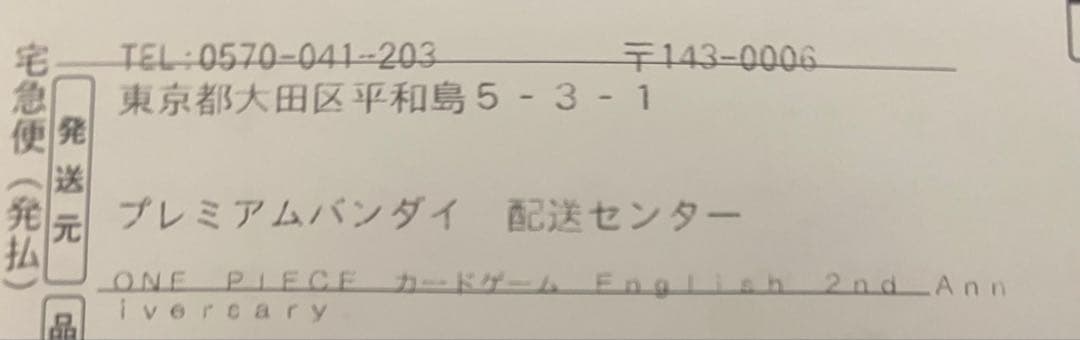 宅急便(発払)
発送元
TEL:0570-041-203 〒143-0006
東京都大田区平和島5-3-1
プレミアムバンダイ 配送センター
ONE PIECE カードゲーム English 2nd Ann
ivercary
品